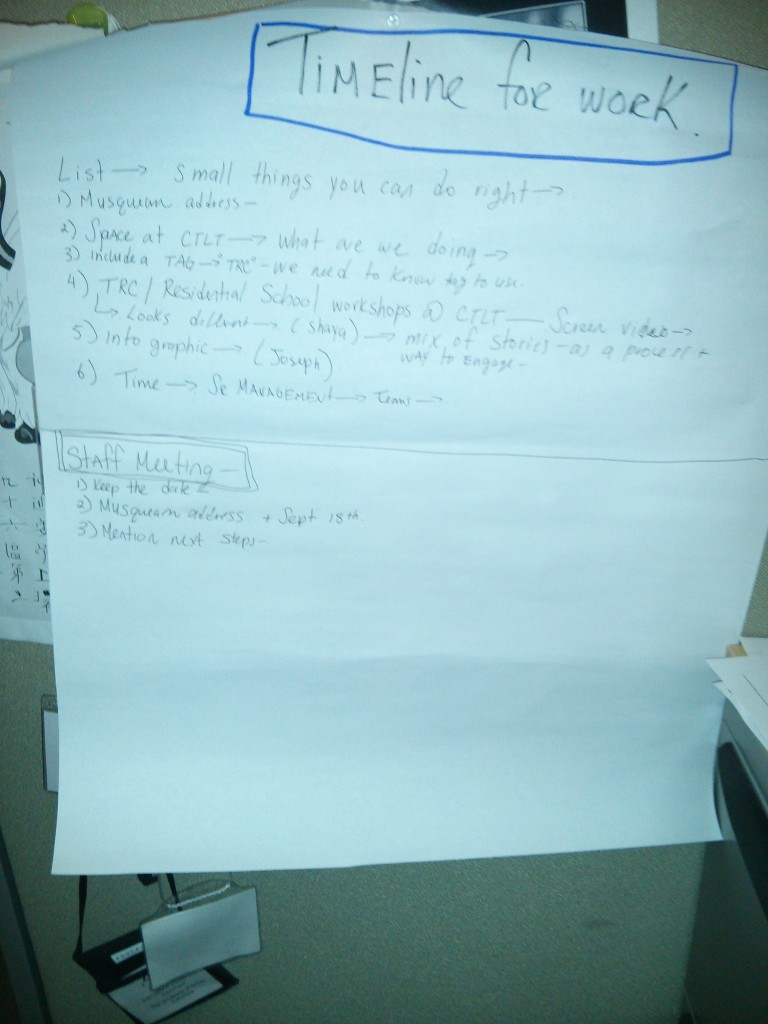 TIMEline for work.
List → Small things you can do right →
1) Musqueam address -
2) Space at CTLT → What are we doing →
3) include a TAG → "TRC" - we need to know tag to use.
4) TRC / Residential School workshops @ CTLT — Screen video →
↳ Looks different → (Shaya) → mix of stories - as a process +
way to Engage -
5) Info graphic → (Joseph)
6) Time → MANAGEMENT → Teams →
Staff Meeting -
1) Keep the date
2) Musqueam address + Sept 18th.
3) Mention next steps -